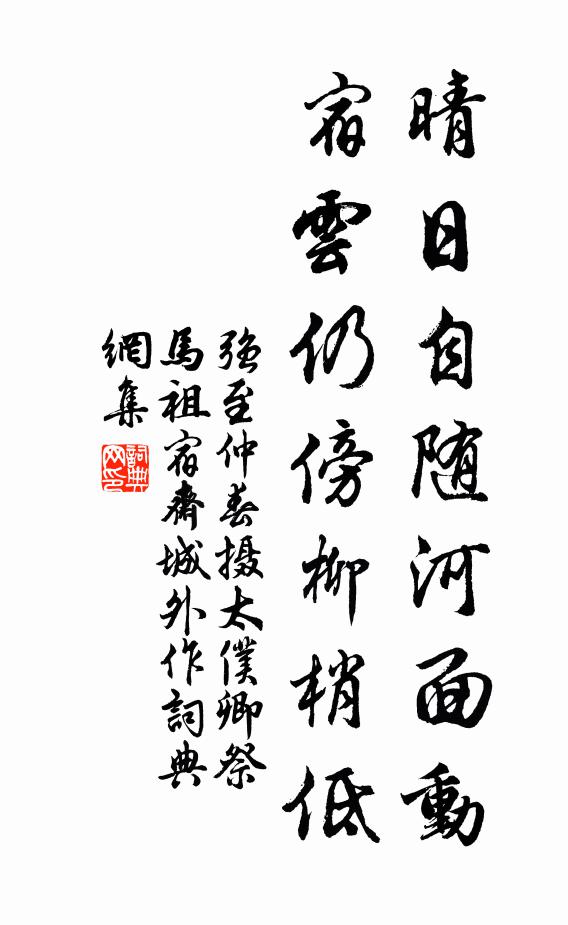 晴日自随河面動
宿雲仍傍柳梢低
强至仲春摄太僕卿祭
馬祖宿齋城外作詞典
網集
詞典
网印